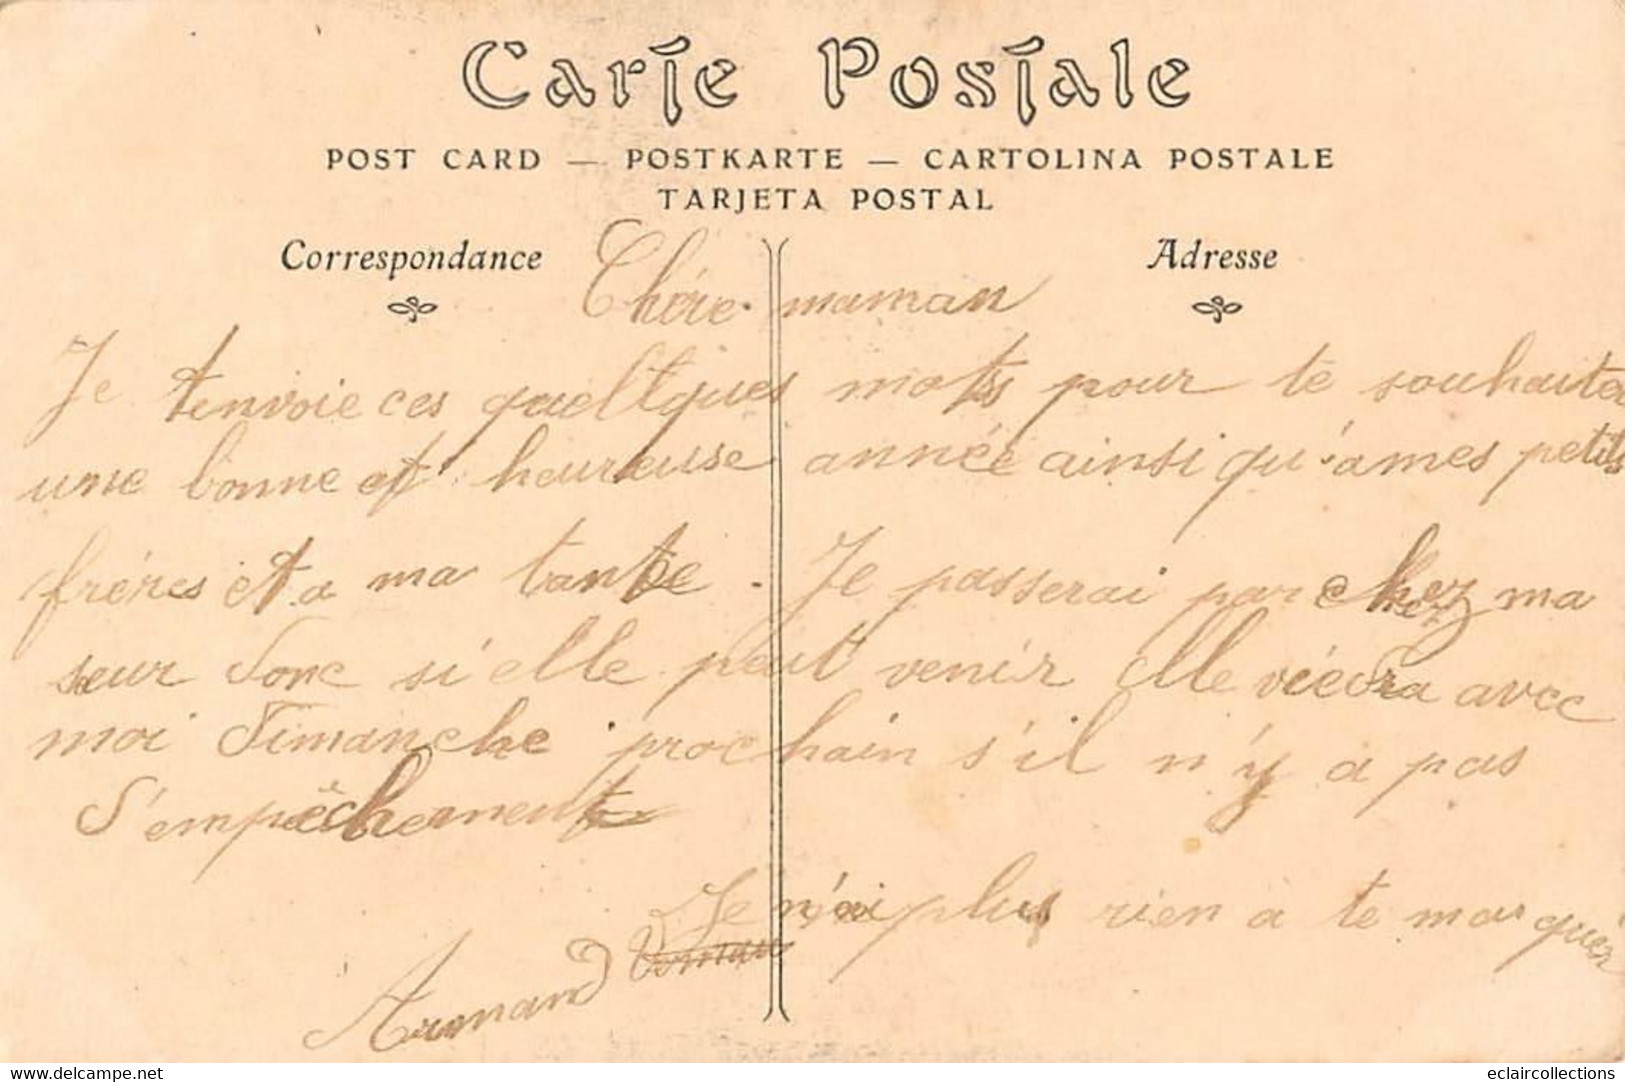 Carte Postale
POST CARD — POSTKARTE — CARTOLINA POSTALE
TARJETA POSTAL
Correspondance
Adresse
Chére maman
Je tenvoie ces queltques mots pour te souhaiter
une bonne et heureuse année ainsi qu'ames petits
fréres et a ma tante. Je passerai par chez ma
sœur donc si elle peut venir elle viedra avec
moi dimanche prochain s'il n'y a pas
d'empêchement
Je n'ai plus rien a te marquér
Armand
delcampe.net
eclaircollections